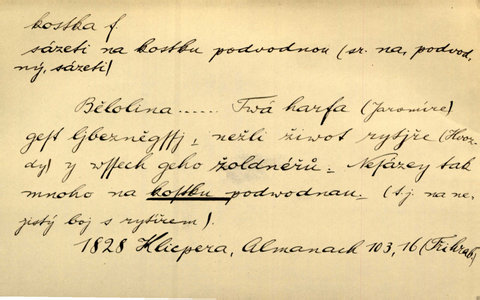 kostka f
sázeti na kostku podvodnou (sr. na, podvod,
ný, sázeti)
Bělolina...... Twá harfa (Jaromíre)
gest ljbezněgssj, nežli žiwot rytjře (Hwoz-
dy) y wssech geho žoldnéřů. Nesázey tak
mnoho na kostku podwodnau. (t.j. na ne-
jistý boj s rytířem).
1828 Klicpera, Almanach 103, 16 (Tři hrab)